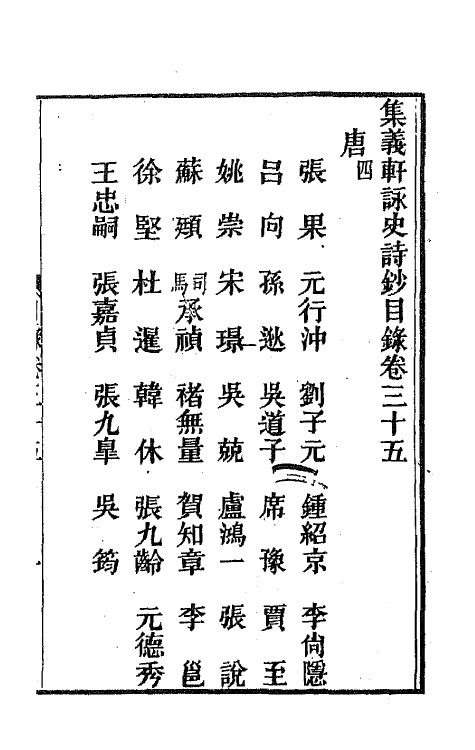 集義軒詠史詩鈔目錄卷三十五
唐四
張果 元行沖 劉子元 鍾紹京 李尙隱
呂向 孫逖 吳道子 席豫 賈至
姚崇 宋璟 吳兢 盧鴻一 張說
蘇頲 司馬承禎 褚無量 賀知章 李邕
徐堅 杜暹 韓休 張九齡 元德秀
王忠嗣 張嘉貞 張九臯 吳筠